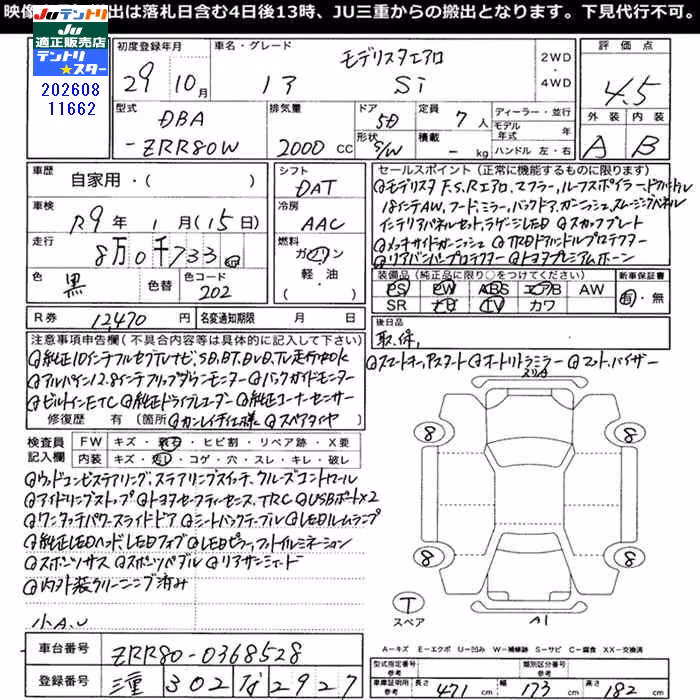 映像 出は落札日含む4日後13時、JU三重からの搬出となります。下見代行不可。
JUテントリ
適正販売店
テントリ★スター
202608
11662
初度登録年月
29 10月
車名・グレード
モデリスタエアロ
13 Si
2WD
・
4WD
評価点
4.5
外装 内装
A B
型式
DBA
-ZRR80W
排気量
2000 CC
ドア
5D
形状
S/W
定員
7 人
積載
- kg
ディーラー・並行
モデル年式 年
ハンドル 左・右
車歴
自家用・( )
車検
R9年 1月(15日)
走行
8万0千733 km
色
黒
色替
色コード
202
シフト
DAT
冷房
AAC
燃料
ガソリン
軽油
( )
セールスポイント (正常に機能するものに限ります)
◎モデリスタF.S.Rエアロ、マフラー、ルーフスポイラー、ドアハンドル
18インチAW、フード、ミラー、バックドア、ガーニッシュ、スムージングパネル
インテリアパネルセット、ラゲージLED ◎スカッフプレート
◎メッキサイドガーニッシュ ◎TRDドアハンドルプロテクター
◎リアバンパープロテクター ◎トヨタプレミアムホーン
装備品 (純正品に限り○をつけてください)
PS PW ABS エアB AW
SR ナビ TV カワ
新車保証書
有・無
R券 12,470 円
名変通知期限 月 日
後日品
取、保、
注意事項申告欄(不具合内容等は具体的に記入して下さい)
◎純正10インチフルセグTVナビ、SD、BT、DVD、TV走行中OK
◎アルパイン12.8インチフリップダウンモニター ◎バックガイドモニター
◎ビルトインETC ◎純正ドライブレコーダー ◎純正コーナーセンサー
修復歴 有 (箇所 ◎カンレイチ仕様 ◎スペアタイヤ )
◎スマートキー、Pスタート ◎オートリトラミラー ◎マット、バイザー
検査員記入欄
FW キズ・飛石・ヒビ割・リペア跡・X要
内装 キズ・汚レ・コゲ・穴・スレ・キレ・破レ
◎ウッドコンビステアリング、ステアリングスイッチ、クルーズコントロール
◎アイドリングストップ ◎トヨタセーフティセンス、TRC ◎USBポート×2
◎ワンタッチパワースライドドア ◎シートバックテーブル ◎LEDルームランプ
◎純正LEDヘッド、LEDフォグ ◎LEDピラー、フットイルミネーション
◎スポーツサス ◎スポーツペダル ◎リアサンシェード
◎内外装クリーニング済み
小A.U
8
8
8
8
T
スペア
A1
A-キズ E-エクボ U-凹み W-補修跡 S-サビ C-腐食 XX-交換済
車台番号
ZRR80-0368528
登録番号
三重 302 な 2927
型式指定番号
参考
類別区分番号
参考
車庫証明用
参考
長さ 471 cm
幅 173 cm
高さ 182 cm